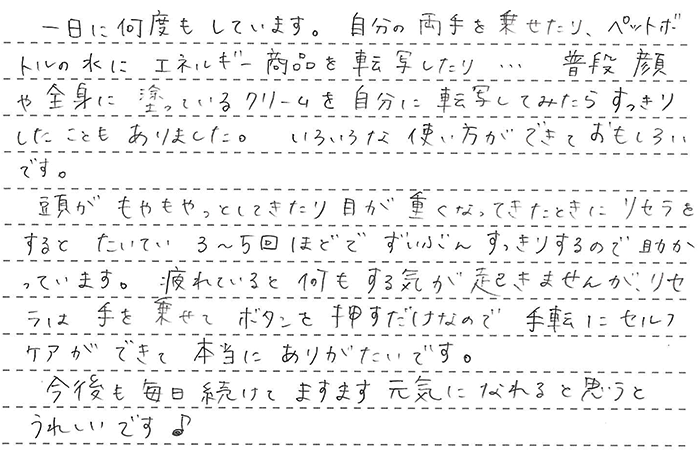 一日に何度もしています。自分の両手を乗せたり、ペットボ
トルの水にエネルギー商品を転写したり… 普段顔
や全身に塗っているクリームを自分に転写してみたらすっきり
したこともありました。 いろいろな使い方ができておもしろい
です。
頭がもやもやっとしてきたり目が重くなってきたときにリセラを
するとたいてい3～5回ほどでずいぶんすっきりするので助か
っています。疲れていると何もする気が起きませんが、リセ
ラは手を乗せてボタンを押すだけなので手転にセルフ
ケアができて本当にありがたいです。
今後も毎日続けてますます元気になれると思うと
うれしいです♪